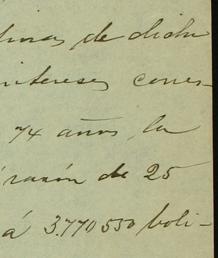 de dicha
intereses corres-
74 años, la
razón de 25
á 3.770.550 boli-